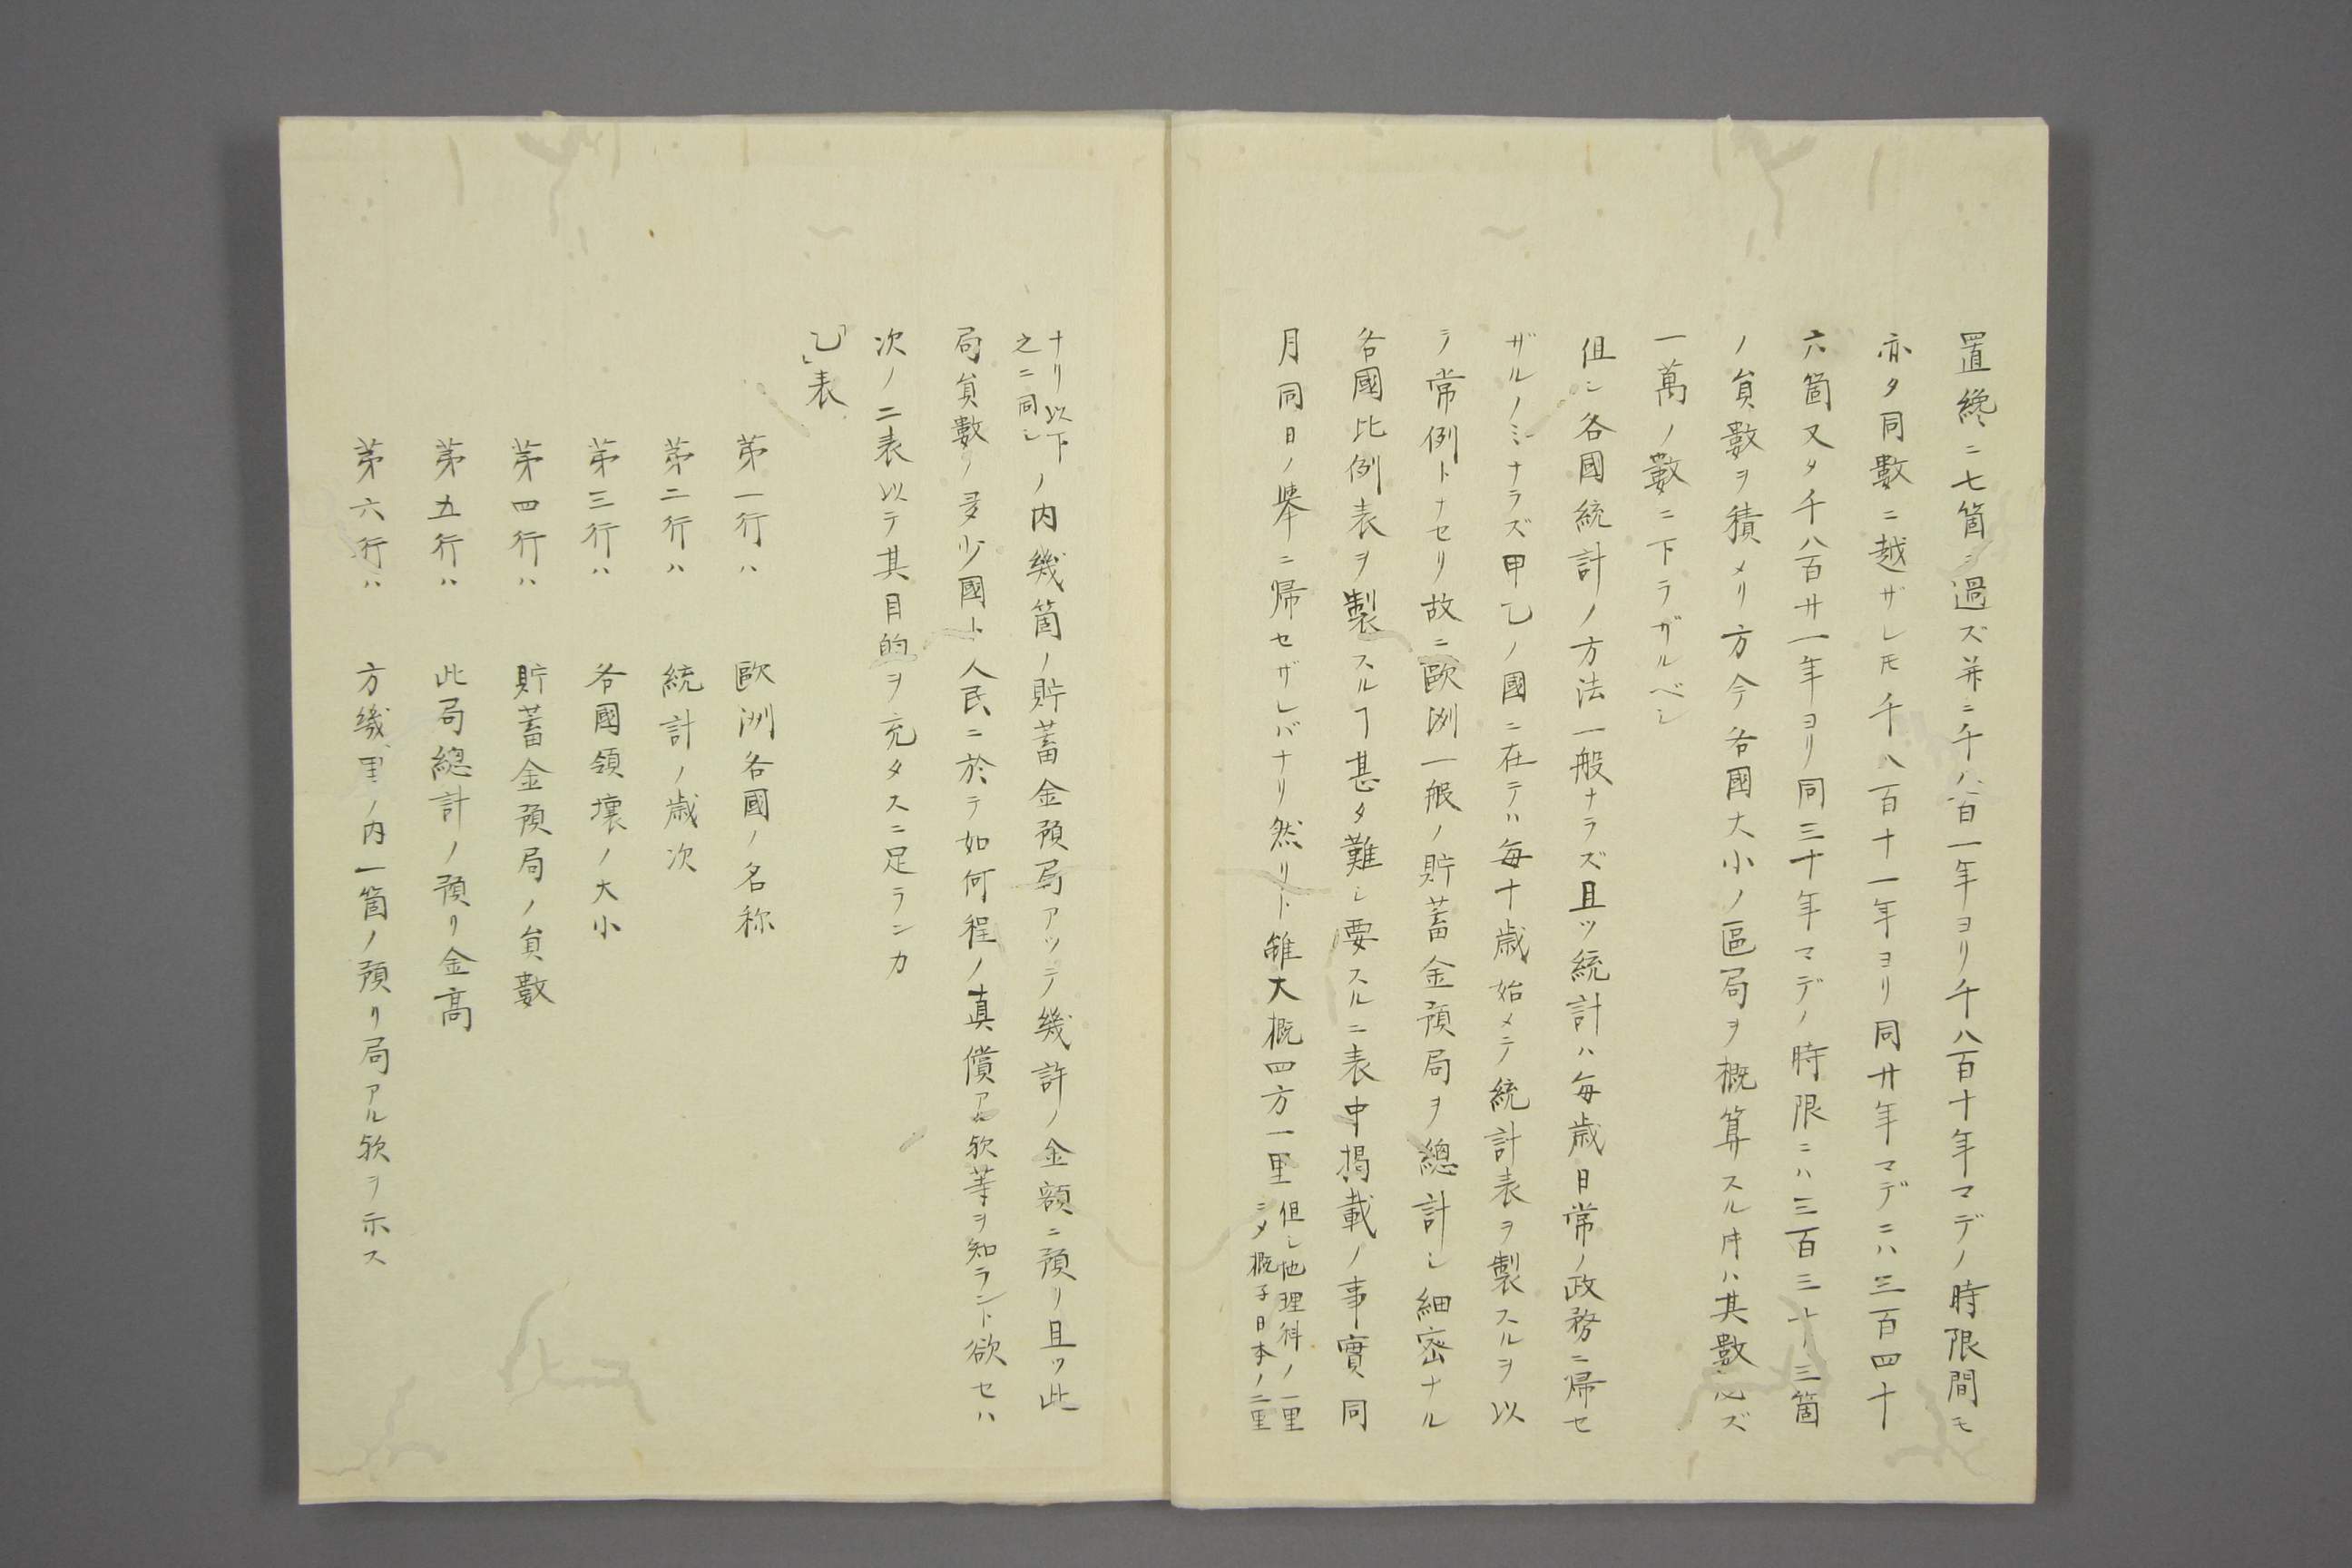 置纔ニ七箇ニ過ズ并ニ千八百一年ヨリ千八百十年マデノ時限間モ
亦タ同數ニ越ザレ𪜈千八百十一年ヨリ同廿年マデニハ三百四十
六箇又タ千八百廿一年ヨリ同三十年マデノ時限ニハ三百三十三箇
ノ負數ヲ積メリ方今各國大小ノ區局ヲ概算スル𪜈ハ其數必ズ
一萬ノ數ニ下ラガルベシ
但シ各國統計ノ方法一般ナラズ且ツ統計ハ毎歳日常ノ政務ニ帰セ
ザルノミナラズ甲乙ノ國ニ在テハ毎十歳始メテ統計表ヲ製スルヲ以
ラ常例トナセリ故ニ歐洲一般ノ貯蓄金預局ヲ總計シ細密ナル
各國比例表ヲ製スルヿ甚タ難シ要スルニ表中掲載ノ事實同
月同日ノ擧ニ帰セザレバナリ然リト雖大概四方一里
但シ地理科ノ一里
ニメ概子日本ノ二里
ナリ以下
之ニ同シ
ノ内幾箇ノ貯蓄金預局アツテ幾許ノ金額ニ預リ且ツ此
局負數ノ多少國ト人民ニ於テ如何程ノ真償アル欤等ヲ知ラント欲セハ
次ノ二表以テ其目的ヲ充タスニ足ランカ
「乙」表
苐一行ハ 歐洲各國ノ名称
苐二行ハ 統計ノ歳次
苐三行ハ 各國領壤ノ大小
苐四行ハ 貯蓄金預局ノ負數
苐五行ハ 此局總計ノ預リ金高
苐六行ハ 方幾里ノ内一箇ノ預リ局アル欤ヲ示ス